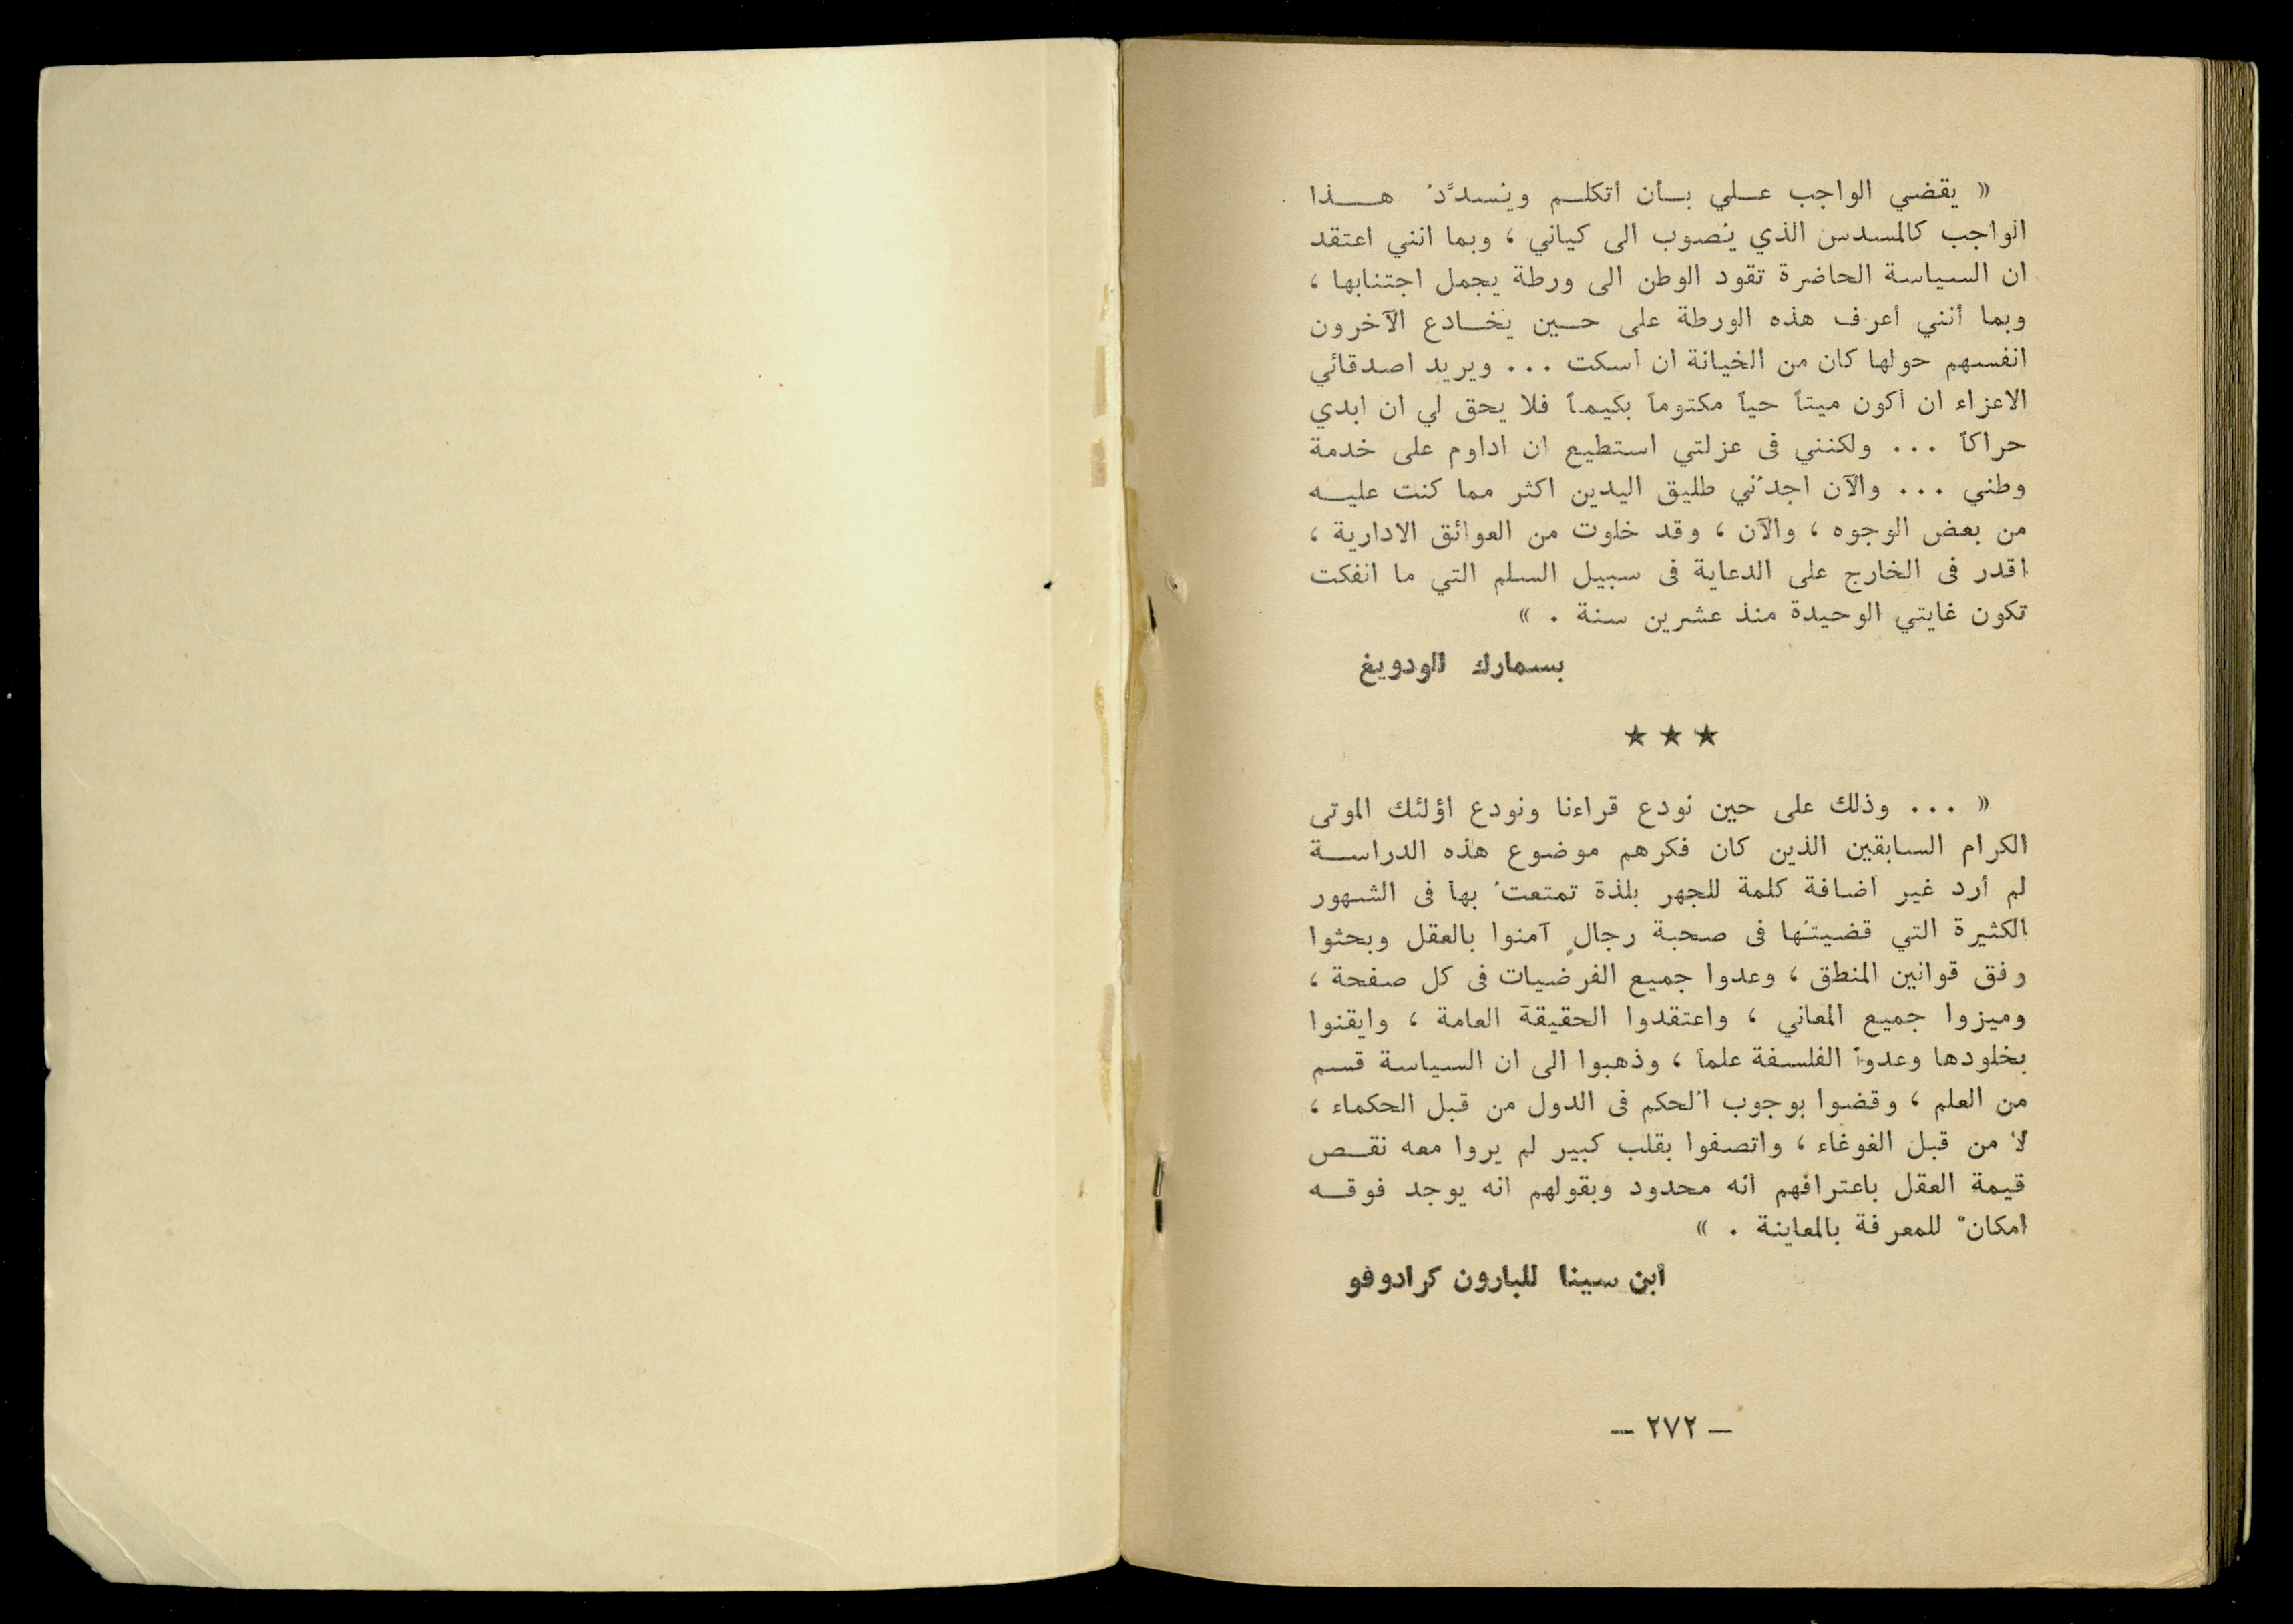 « يقضي الواجب عـلي بـأن أتكلـم ويُسدَّدُ هـذا
الواجب كالمسدس الذي يُصوب الى كياني ، وبما انني اعتقد
ان السياسة الحاضرة تقود الوطن الى ورطة يجمل اجتنابها ،
وبما أنني أعرف هذه الورطة على حـين يخـادع الآخرون
انفسهم حولها كان من الخيانة ان اسكت ... ويريد اصدقائي
الاعزاء ان اكون ميتاً حياً مكتوماً بكيماً فلا يحق لي ان ابدي
حراكاً ... ولكنني فى عزلتي استطيع ان اداوم على خدمة
وطني ... والآن اجدُني طليق اليدين اكثر مما كنت عليـه
من بعض الوجوه ، والآن ، وقد خلوت من العوائق الادارية ،
اقدر فى الخارج على الدعاية فى سبيل السلم التي ما انفكت
تكون غايتي الوحيدة منذ عشرين سنة . »
بسمارك للودويغ
★ ★ ★
« ... وذلك على حين نودع قراءنا ونودع اؤلئك الموتى
الكرام السابقين الذين كان فكرهم موضوع هذه الدراسـة
لم أرد غير اضافة كلمة للجهر بلذة تمتعتُ بها فى الشهور
الكثيرة التي قضيتُها فى صحبة رجالٍ آمنوا بالعقل وبحثوا
وفق قوانين المنطق ، وعدوا جميع الفرضيات فى كل صفحة ،
وميزوا جميع المعاني ، واعتقدوا الحقيقة العامة ، وايقنوا
بخلودها وعدوا الفلسفة علماً ، وذهبوا الى ان السياسة قسم
من العلم ، وقضوا بوجوب الحكم فى الدول من قبل الحكماء ،
لا من قبل الغوغاء ، واتصفوا بقلب كبير لم يروا معه نقـص
قيمة العقل باعترافهم انه محدود وبقولهم انه يوجد فوقـه
امكانٌ للمعرفة بالمعاينة . »
ابن سينا للبارون كرادوفو
– ٢٧٢ –